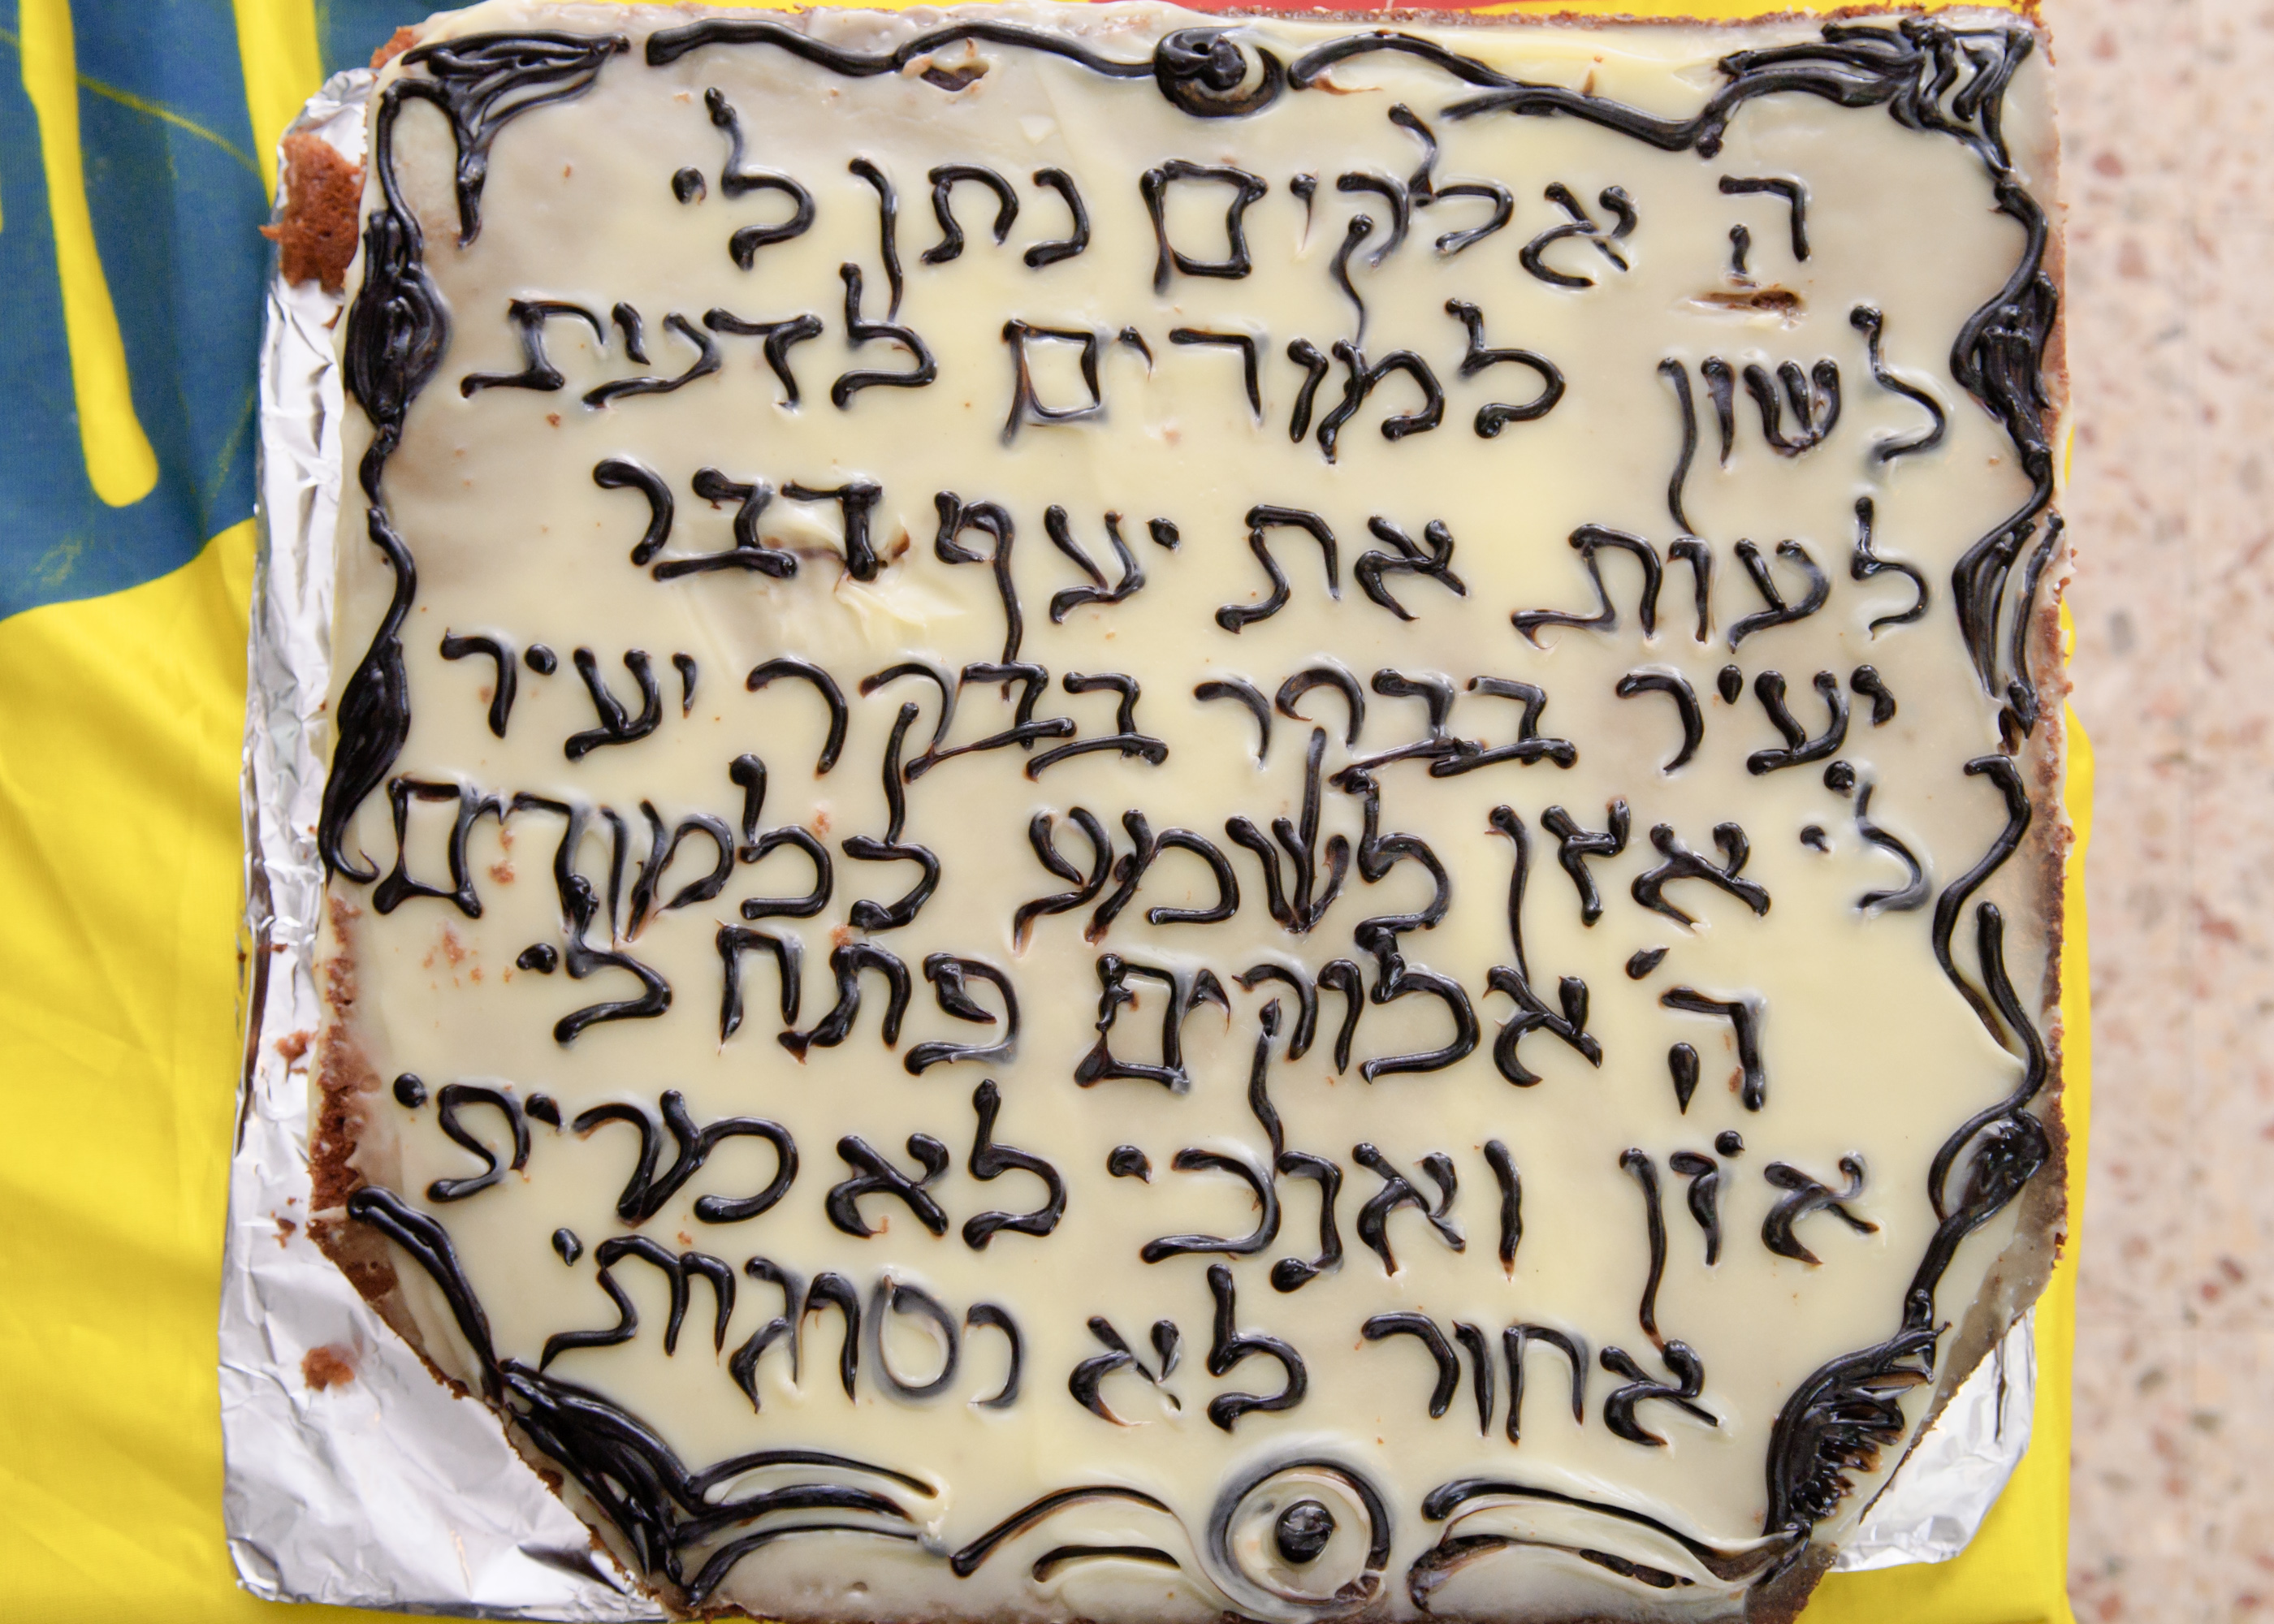 ה אלקים נתן לי
לשון למודים לדעת
לעות את יעף דבר
יעיר בבקר בבקר יעיר
לי אזן לשמע כלמודים
ה' אלוקים פתח לי
אזן ואנכי לא מריתי
אחור לא נסוגתי